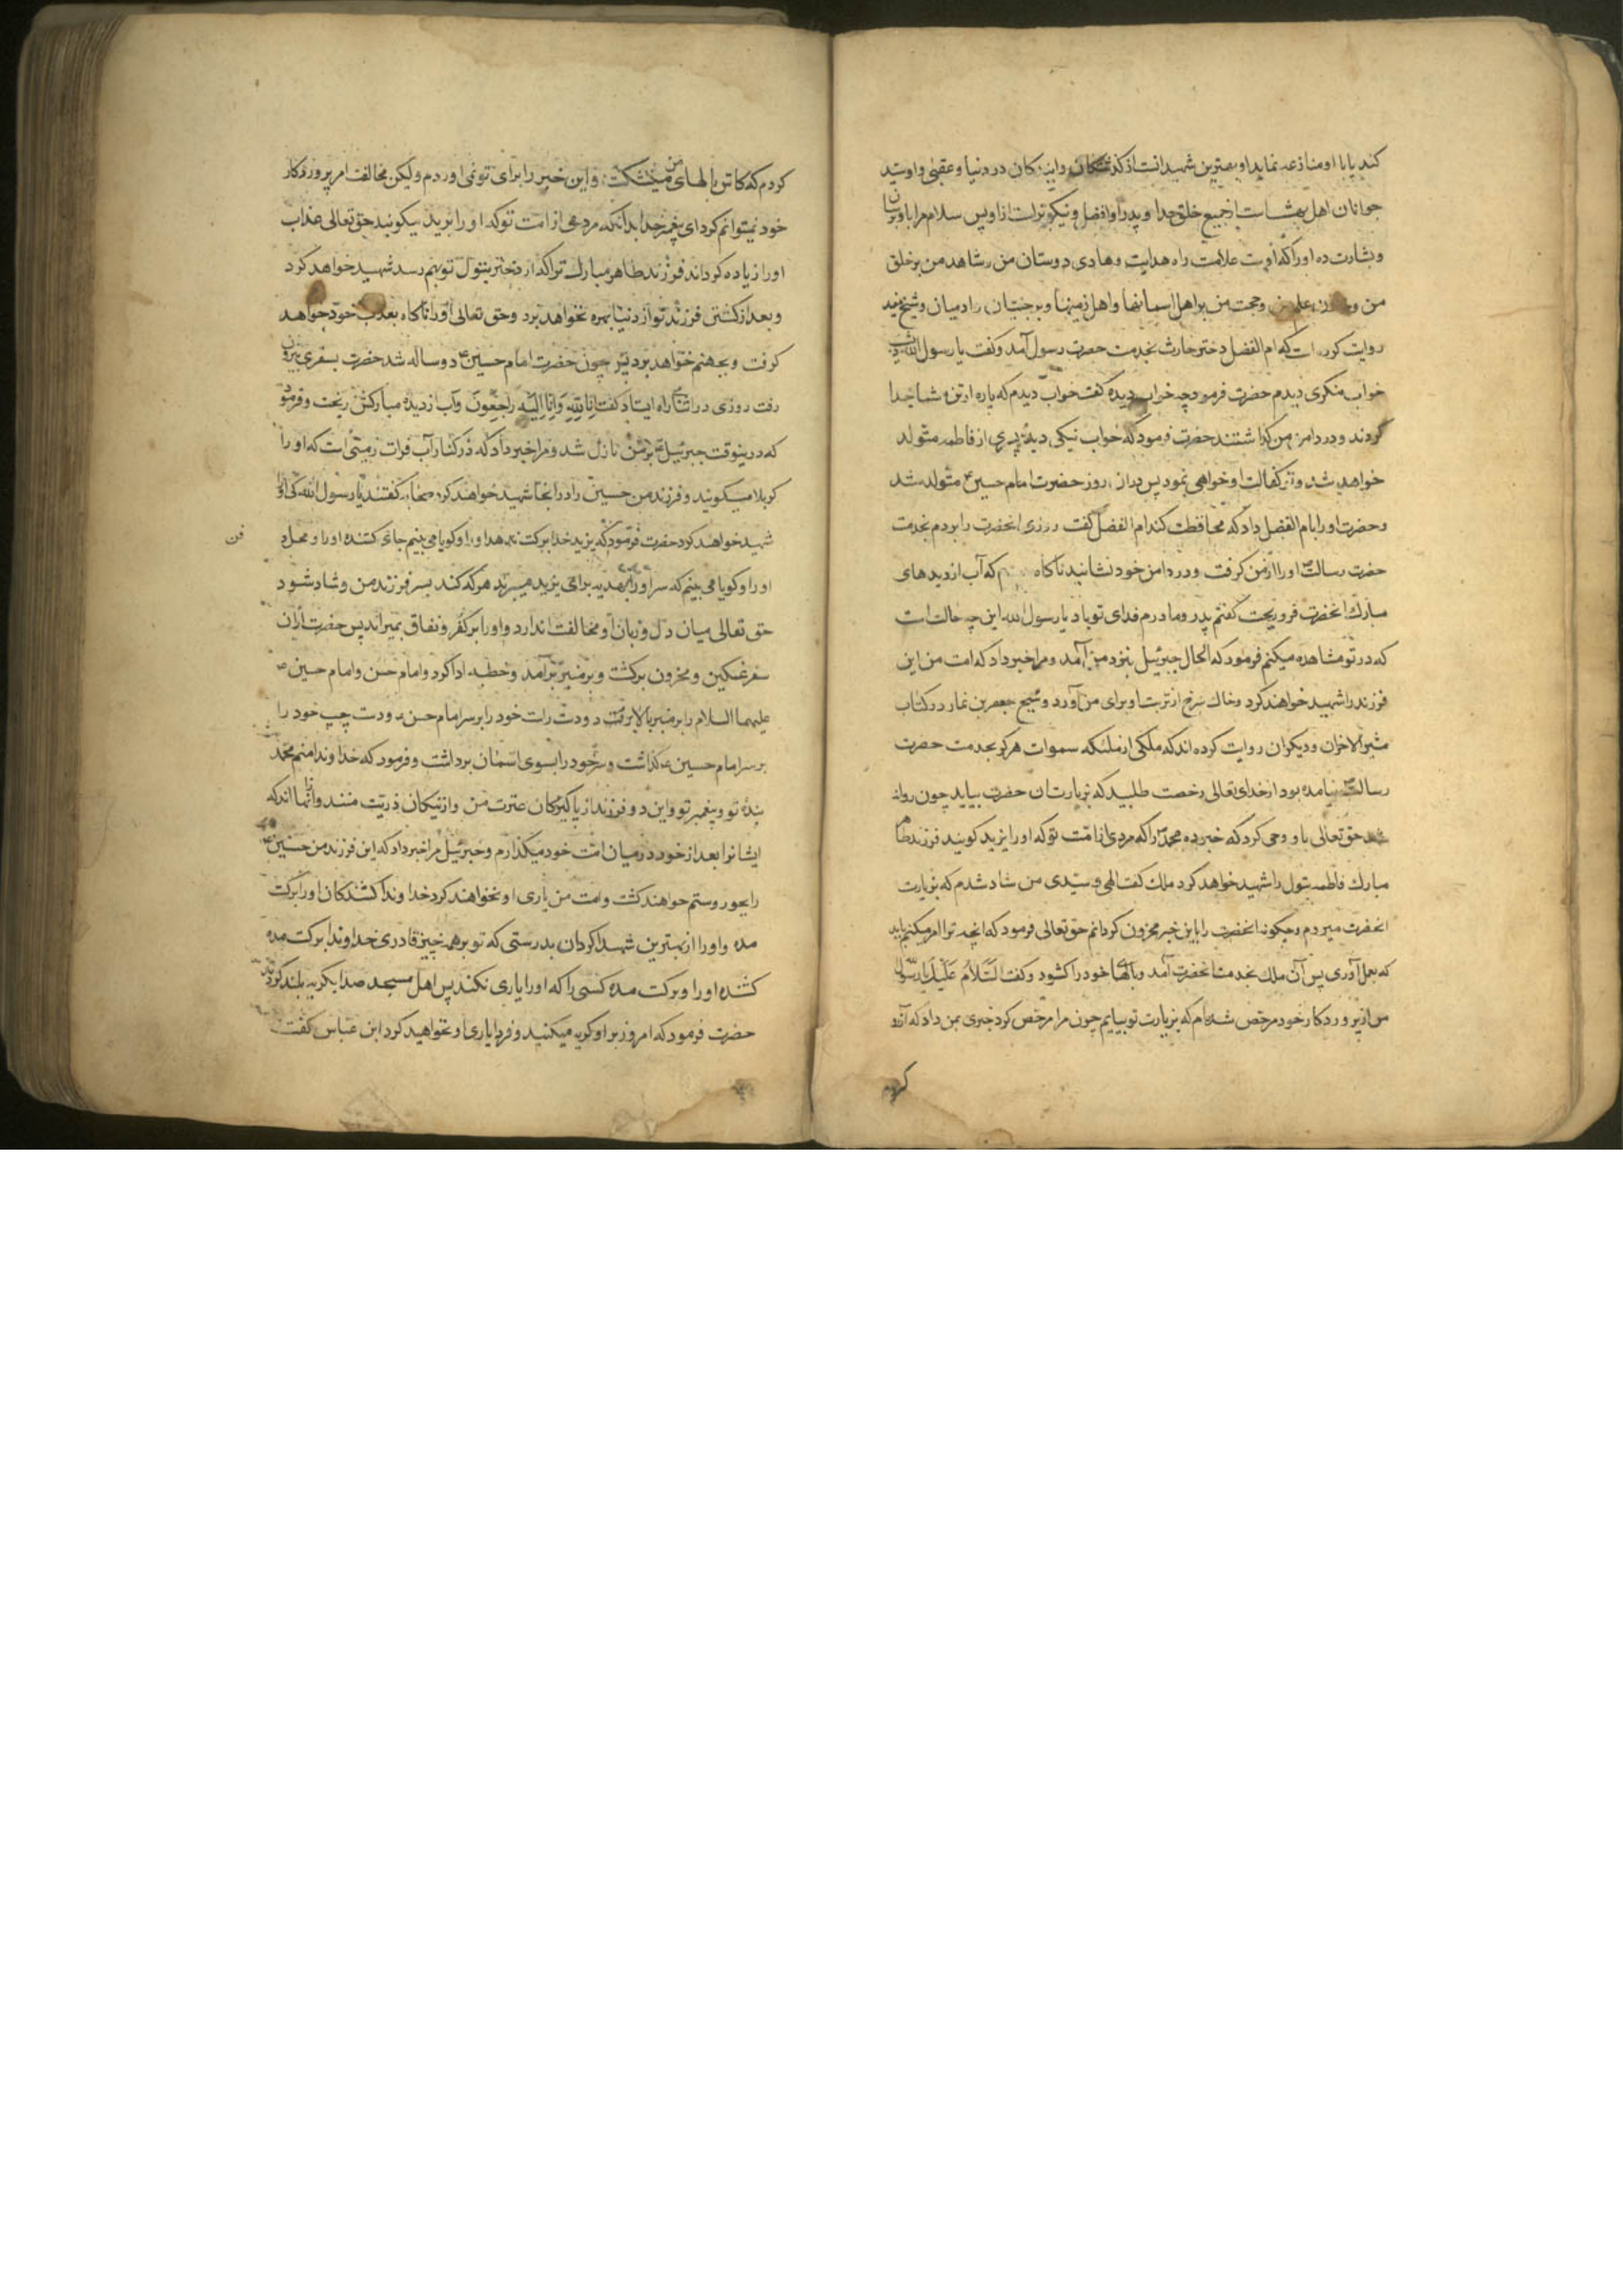 کند یا با او منازعه نماید او بهترین شهیدانست از کذشتکان و ایندکان در دنیا و عقبی و اوسید
جوانان اهل بهشت است از جمیع خلق خدا و پدر او افضل و نیکوتر است از او پس سلام مرا باو برسان
و بشارت ده او را که اوست علامت راه هدایت و هادی دوستان من و شاهد من بر خلق
من و خازن علم من و حجت من بر اهل اسمانها و اهل زمینها و بر جنیان را در میان و شیخ مفید
روایت کرده است که ام الفضل دختر حارث بخدمت حضرت رسول آمد و کفت یا رسول الله
خواب منکری دیدم حضرت فرمود چه خواب دیده کفت خواب دیدم که پاره از تن شما جدا
کردند و در دامن من کذاشتند حضرت فرمود که خواب نیکی دیدۀ پسری از فاطمه متولد
خواهد شد و تو کفالت او خواهی نمود پس دران روز حضرت امام حسین ع متولد شد
و حضرت او را بام الفضل داد که محافظت کند ام الفضل کفت روزی انحضرت را بردم بخدمت
حضرت رسالت او را از من کرفت و در دامن خود نشانید ناکاه که آب از دیدهای
مبارک انحضرت فرو ریخت کفتم پدر و مادرم فدای تو باد یا رسول الله این چه حالت است
که در تو مشاهده میکنم فرمود که الحال جبرئیل بنزد من آمد و مرا خبر داد که امت من این
فرزند را شهید خواهند کرد و خاک سرخ از تربت او برای من آورد و شیخ جعفر بن نما در کتاب
مثیر الاخزان و دیکران روایت کرده اند که ملکی از ملئکه سموات هرکز بخدمت حضرت
رسالت نیامده بود از خدای تعالی رخصت طلبید که بزیارت ان حضرت بیاید چون روانه
شد حق تعالی باو وحی کرد که خبر ده محمد را که مردی از امت تو که او را یزید کویند فرزند طاهر
مبارک فاطمه بتول را شهید خواهد کرد ملک کفت الهی و سیدی من شاد شدم که بزیارت
انحضرت میروم و چکونه انحضرت را باین خبر محزون کردانم حق تعالی فرمود که انچه ترا امر میکنم باید
که بعمل آوری پس آن ملک بخدمت انحضرت آمد و بالهای خود را کشود و کفت السلام علیک یا رسول الله
من از پروردکار خود مرخص شده ام که بزیارت تو بیایم چون مرا مرخص کرد خبری بمن داد که آرزو
کردم
کردم که کاش بالهای من میشکست و این خبر را برای تو نمی اوردم ولکن مخالفت امر پروردکار
خود نمیتوانم کرد ای پیغمبر خدا بدانکه مردمی از امت تو که او را یزید میکویند حق تعالی عذاب
او را زیاده کرداند فرزند طاهر مبارک ترا که از دختر بتول تو بهم رسد شهید خواهد کرد
و بعد از کشتن فرزند تو از دنیا بهره نخواهد برد و حق تعالی او را ناکاه بعذاب خود خواهد
کرفت و بجهنم خواهد برد پس چون حضرت امام حسین ع دو ساله شد حضرت بسفری بیرون
رفت روزی در اثنای راه ایستاد کفت انا لله و انا الیه راجعون و آب از دیده مبارکش ریخت و فرمود
که درینوقت جبرئیل بر من نازل شد و مرا خبر داد که در کنار آب فرات زمینی است که او را
کربلا میکویند و فرزند من حسین را در انجا شهید خواهند کرد صحابه کفتند یا رسول الله کی او را
شهید خواهد کرد حضرت فرمود که یزید خدا برکت ندهد او را و کویا می بینم جای کشته او را و محل د
فن
او را و کویا می بینم که سر او را بهدیه برای یزید میبرند هر که کند بسر فرزند من و شاد شود
حق تعالی میان دل و زبان او مخالفت اندازد و او را بر کفر و نفاق بمیراند پس حضرت ازان
سفر غمکین و محزون برکشت و بر منبر برآمد و خطبه ادا کرد و امام حسن و امام حسین
علیهما السلام را بر منبر بالا برد و دست راست خود را بر سر امام حسن و دست چپ خود را
بر سر امام حسین ع کذاشت و سر خود را بسوی اسمان برداشت و فرمود که خداوندا منم محمد
بندۀ تو و پیغمبر تو و این دو فرزند از پاکیزکان عترت من و از نیکان ذریت منند و انها اند که
ایشانرا بعد از خود در میان امت خود میکذارم و جبرئیل مرا خبر داد که این فرزند من حسین
را بجور و ستم خواهند کشت و امت من یاری او نخواهند کرد خداوندا کشندکان او را برکت
مده و او را از بهترین شهدا کردان بدرستی که تو بر همه چیز قادری خداوندا برکت مده
کشنده او را و برکت مده کسی را که او را یاری نکند پس اهل مسجد صدا بکریه بلند کردند
حضرت فرمود که امروز بر او کریه میکنید و فردا یاری او نخواهید کرد ابن عباس کفت